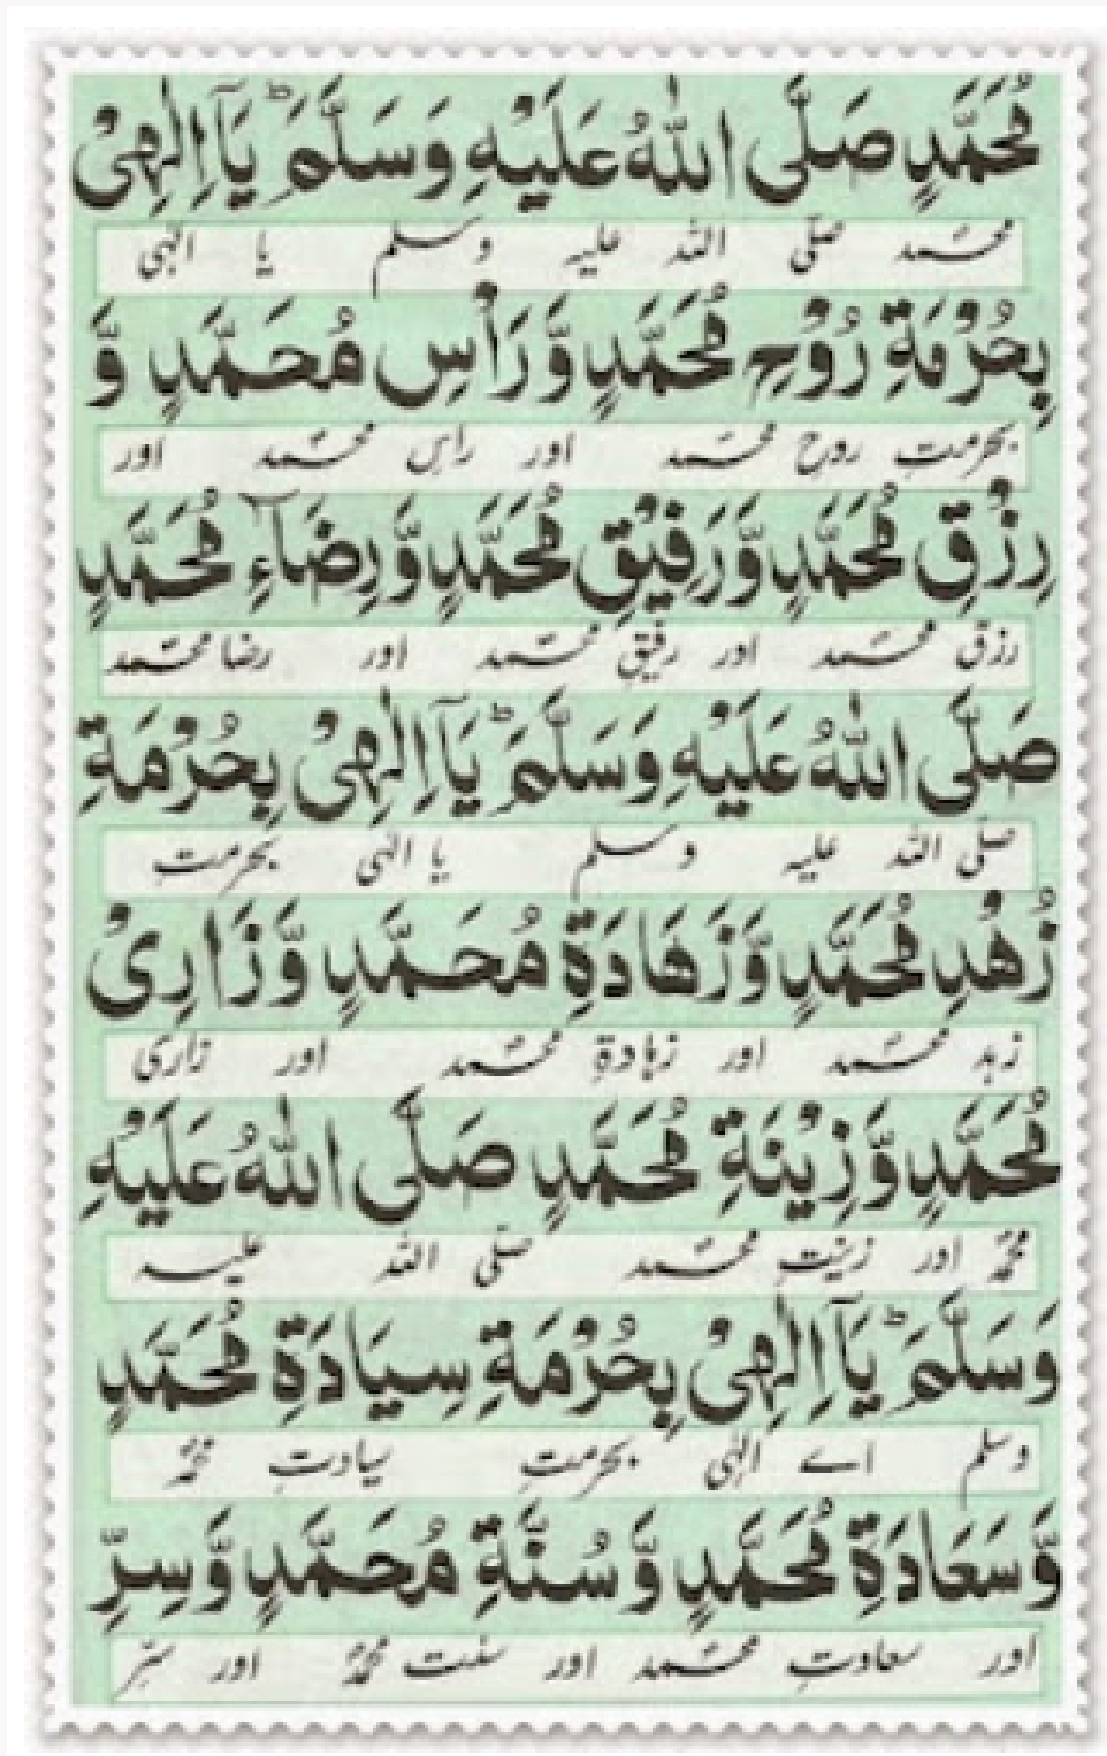 مُحَمَّدٍ صَلَّى اللّٰهُ عَلَيْهِ وَسَلَّمَ ؕ يَآ اِلٰهِيْ
محمّد صلّی اللّٰہ علیہ وسلم یا الٰہی
بِحُرْمَةِ رُوْحِ مُحَمَّدٍ وَّرَأْسِ مُحَمَّدٍ وَّ
بحرمتِ روحِ محمّد اور راسِ محمّد اور
رِزْقِ مُحَمَّدٍ وَّرَفِيْقِ مُحَمَّدٍ وَّرِضَآءِ مُحَمَّدٍ
رزقِ محمّد اور رفیقِ محمّد اور رضا محمّد
صَلَّى اللّٰهُ عَلَيْهِ وَسَلَّمَ ؕ يَآ اِلٰهِيْ بِحُرْمَةِ
صلّی اللّٰہ علیہ وسلم یا الٰہی بحرمتِ
زُهْدِ مُحَمَّدٍ وَّزَهَادَةِ مُحَمَّدٍ وَّزَارِيْ
زہد محمّد اور زہادۃِ محمّد اور زاری
مُحَمَّدٍ وَّزِيْنَةِ مُحَمَّدٍ صَلَّى اللّٰهُ عَلَيْهِ
محمّد اور زینتِ محمّد صلّی اللّٰہ علیہ
وَسَلَّمَ ؕ يَآ اِلٰهِيْ بِحُرْمَةِ سِيَادَةِ مُحَمَّدٍ
وسلم اے الٰہی بحرمتِ سیادتِ محمّد
وَّسَعَادَةِ مُحَمَّدٍ وَّسُنَّةِ مُحَمَّدٍ وَّسِرِّ
اور سعادتِ محمّد اور سنت محمّد اور سرِّ